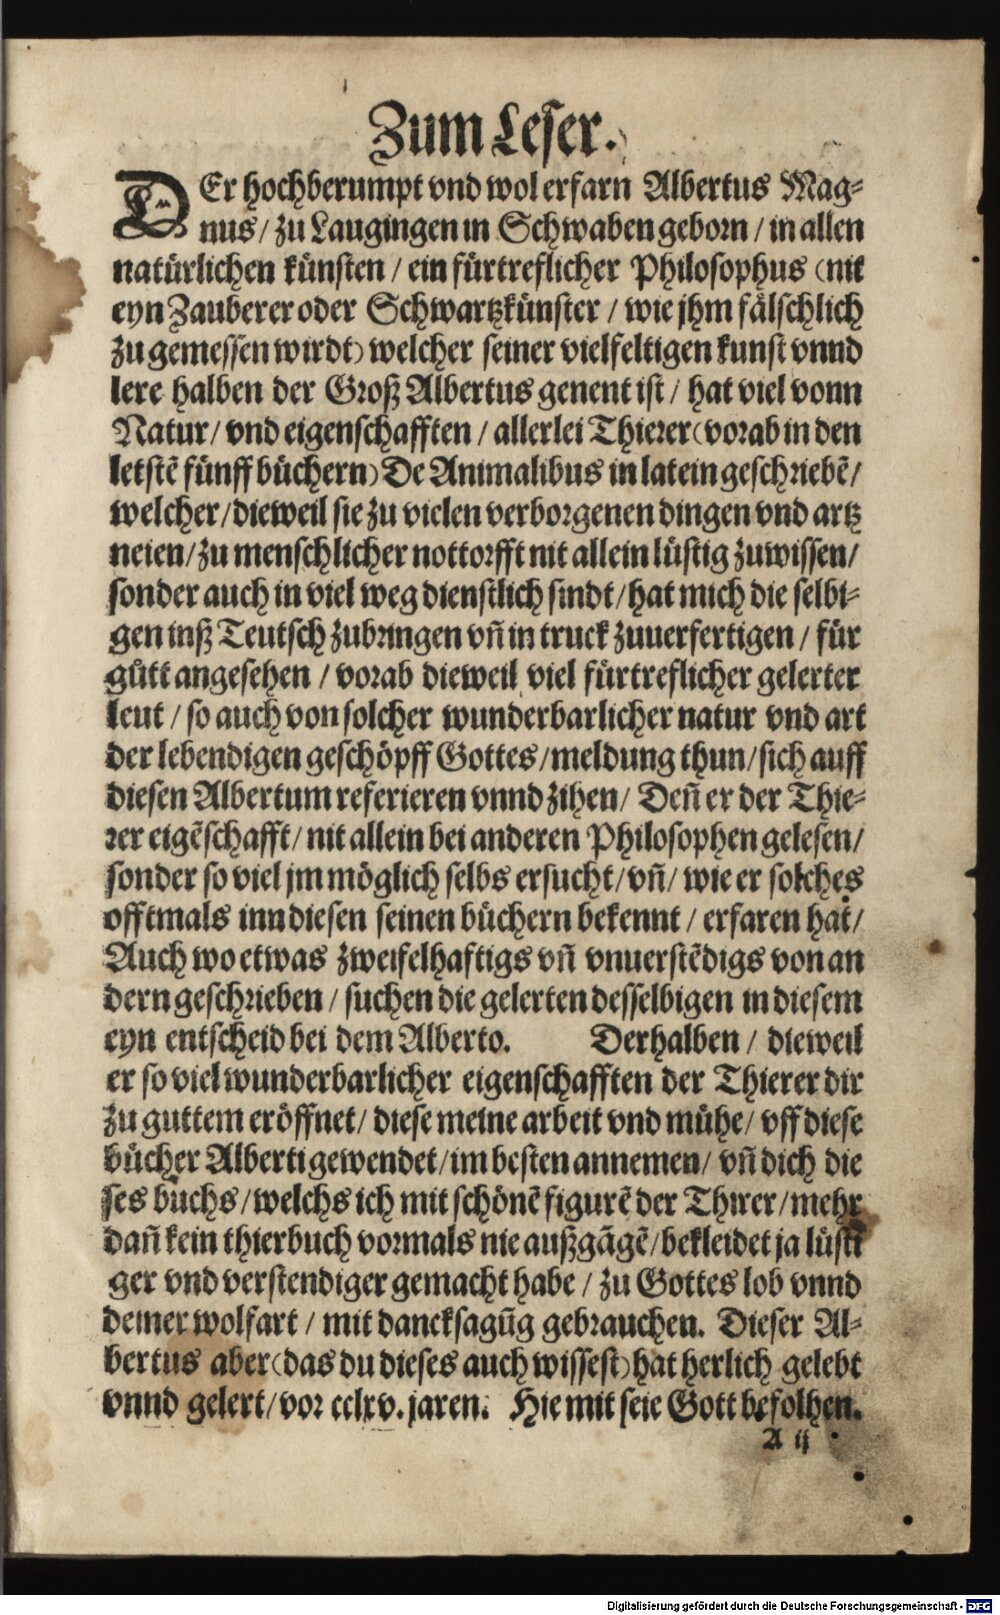 Zum Leser.
DEr hochberumpt vnd wol erfarn Albertus Mag⸗
nus/ zu Laugingen in Schwaben geborn / in allen
natürlichen künsten / ein fürtreflicher Philosophus (nit
eyn Zauberer oder Schwartzkünster / wie jhm fälschlich
zu gemessen wirdt) welcher seiner vielfeltigen kunst vnnd
lere halben der Groß Albertus genent ist / hat viel vonn
Natur/ vnd eigenschafften / allerlei Thierer (vorab in den
letstē fünff büchern) De Animalibus in latein geschriebē/
welcher/ dieweil sie zu vielen verborgenen dingen vnd artz
neien/ zu menschlicher nottorfft nit allein lüstig zuwissen/
sonder auch in viel weg dienstlich sindt/ hat mich die selbi⸗
gen inß Teutsch zubringen vñ in truck zuuerfertigen / für
gůtt angesehen / vorab dieweil viel fürtreflicher gelerter
leut / so auch von solcher wunderbarlicher natur vnd art
der lebendigen geschöpff Gottes/ meldung thun/ sich auff
diesen Albertum referieren vnnd zihen/ Deñ er der Thie⸗
rer eigēschafft/ nit allein bei anderen Philosophen gelesen/
sonder so viel jm möglich selbs ersucht/ vñ/ wie er solches
offtmals inn diesen seinen büchern bekennt / erfaren hat/
Auch wo etwas zweifelhaftigs vñ vnuerstēdigs von an
dern geschrieben / suchen die gelerten desselbigen in diesem
eyn entscheid bei dem Alberto. Derhalben / dieweil
er so viel wunderbarlicher eigenschafften der Thierer dir
zu guttem eröffnet/ diese meine arbeit vnd mühe/ vff diese
bücher Alberti gewendet/ im besten annemen/ vñ dich die
ses bůchs/ welchs ich mit schönē figurē der Thirer/ mehr
dañ kein thierbuch vormals nie außgāgē/ bekleidet ja lüsti
ger vnd verstendiger gemacht habe / zu Gottes lob vnnd
deiner wolfart / mit dancksagūg gebrauchen. Dieser Al⸗
bertus aber (das du dieses auch wissest) hat herlich gelebt
vnnd gelert/ vor cclxv. jaren. Hie mit seie Gott befolhen.
A ij
Digitalisierung gefördert durch die Deutsche Forschungsgemeinschaft - DFG